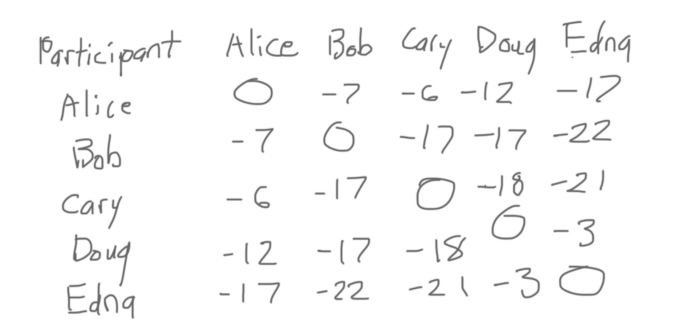 Participant Alice Bob Cary Doug Edna
Alice 0 -7 -6 -12 -17
Bob -7 0 -17 -17 -22
Cary -6 -17 0 -18 -21
Doug -12 -17 -18 0 -3
Edna -17 -22 -21 -3 0